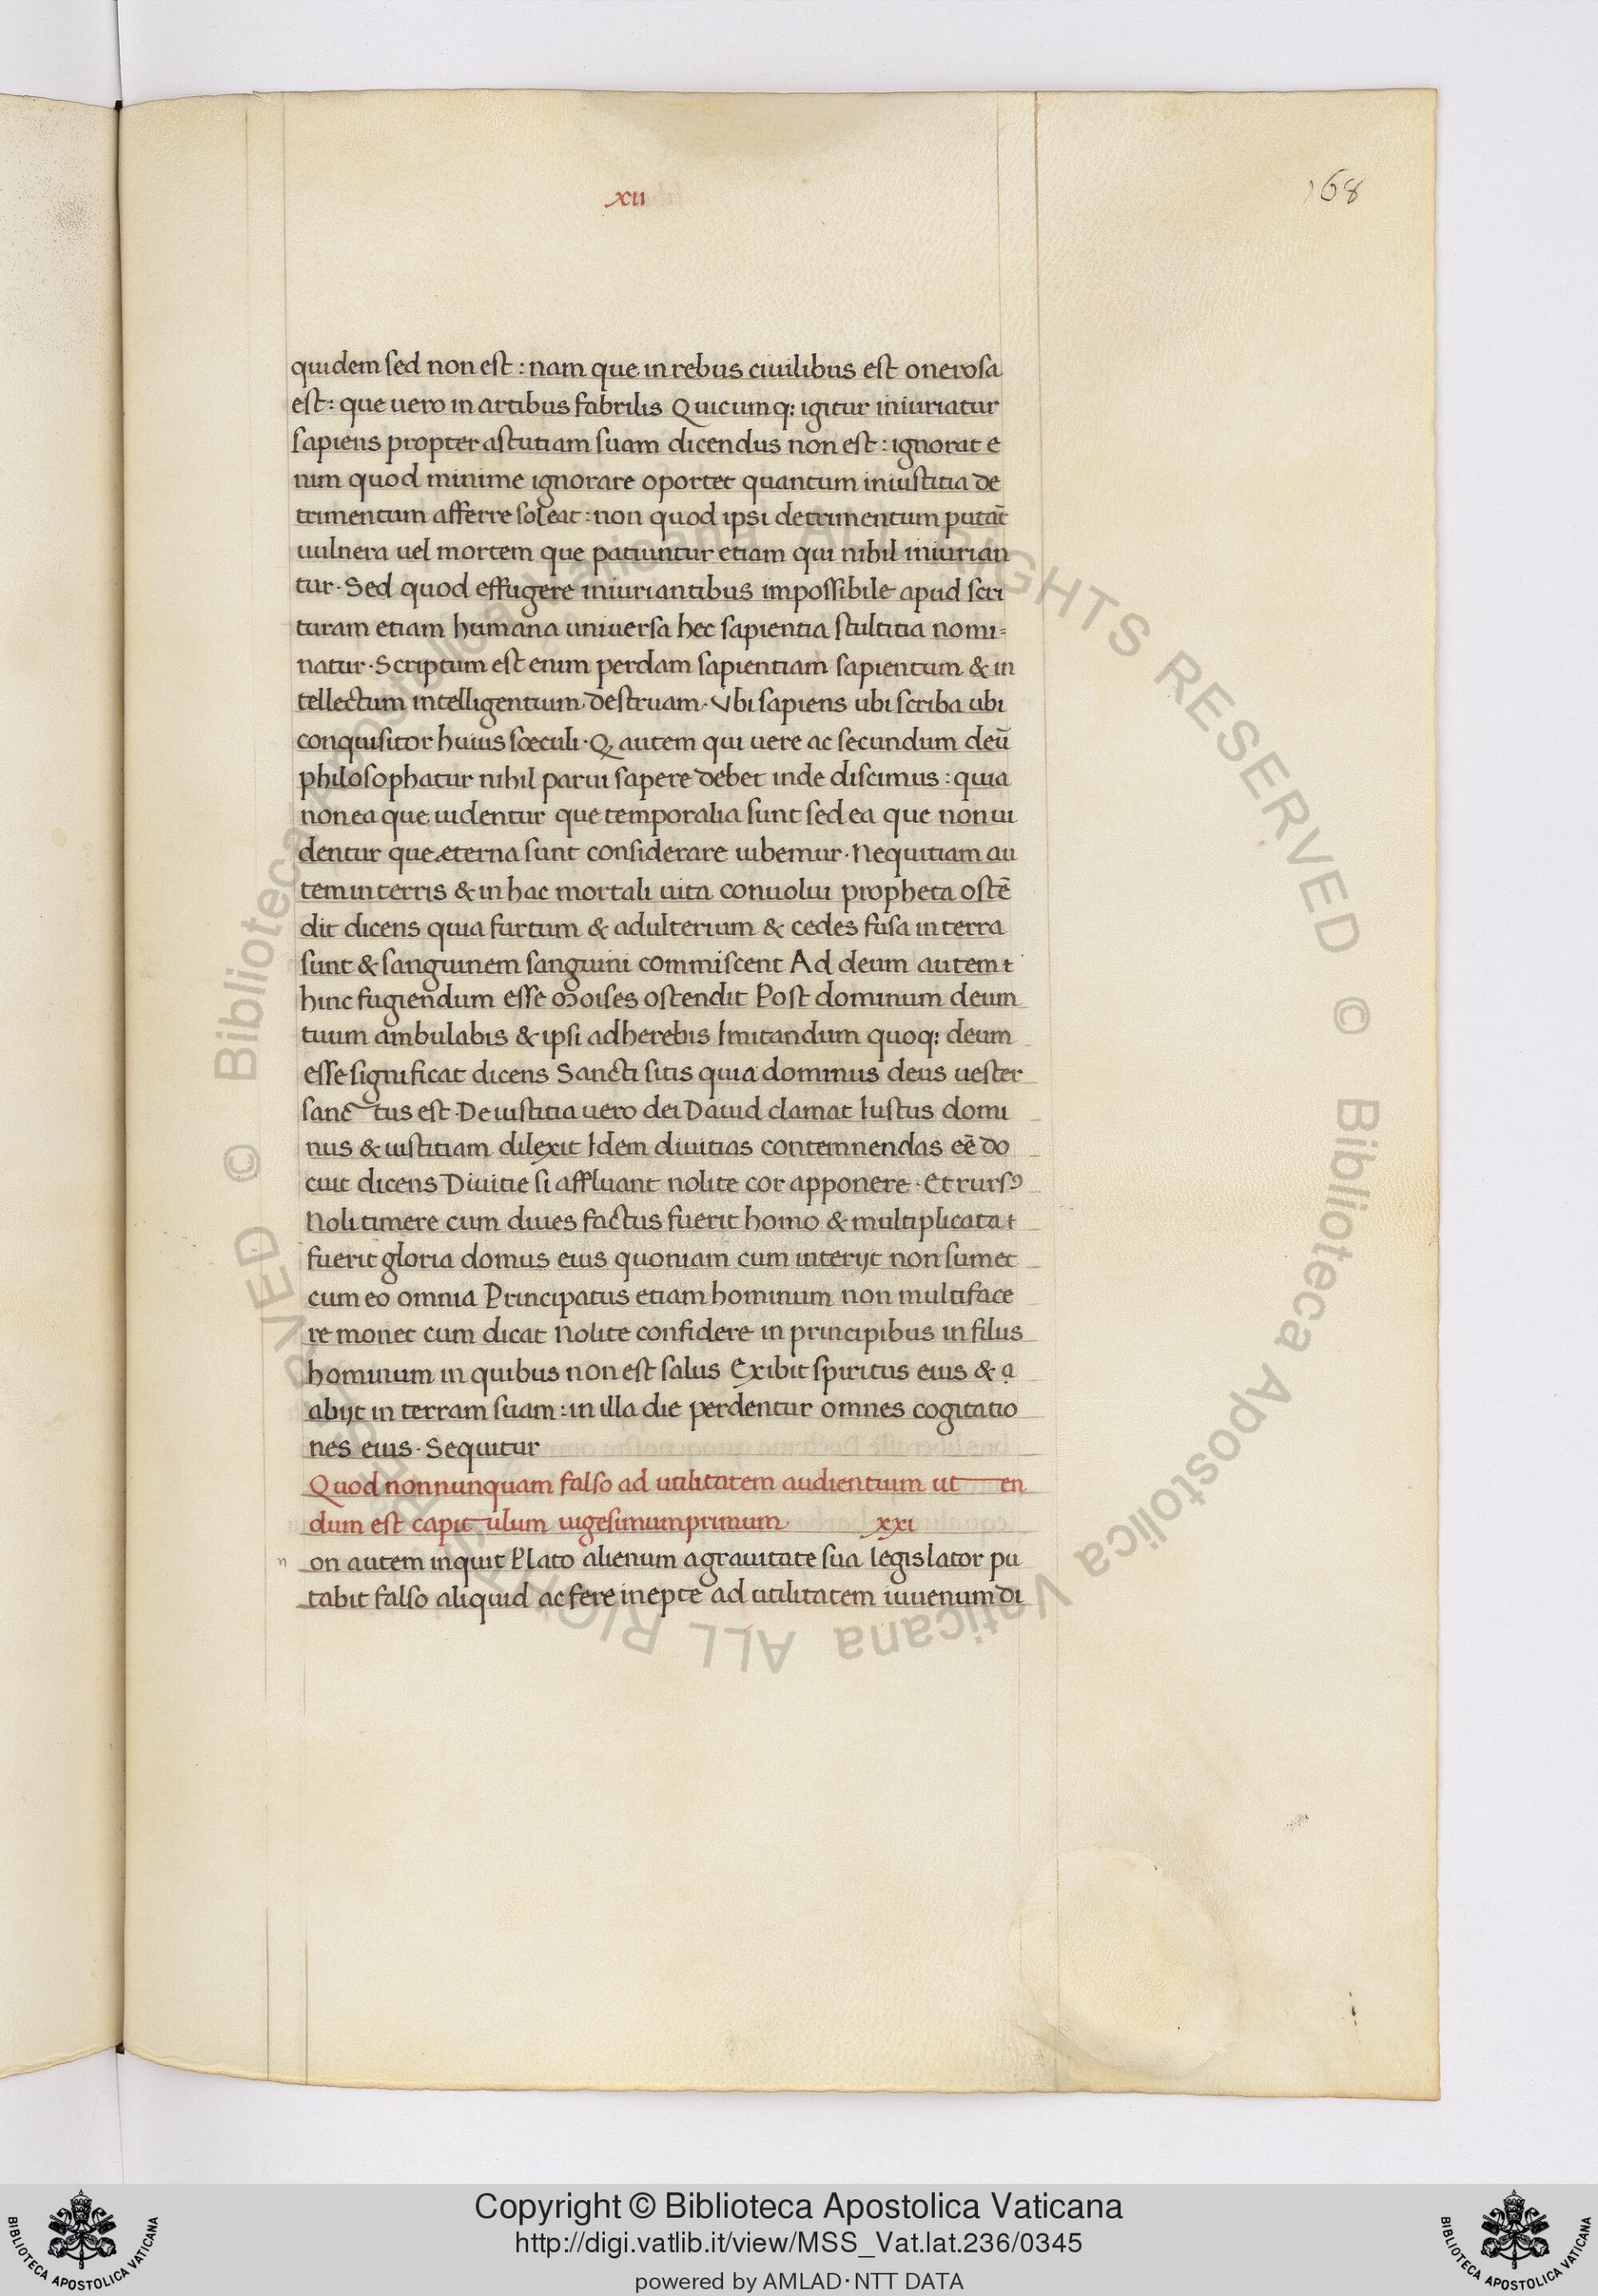 xii
168
quidem sed non est : nam que in rebus ciuilibus est onerosa
est : que uero in artibus fabrilis Quicumq; igitur iniuriatur
sapiens propter astutiam suam dicendus non est : ignorat e
nim quod minime ignorare oportet quantum iniustitia de
trimentum afferre soleat : non quod ipsi detrimentum putāt
uulnera uel mortem que patiuntur etiam qui nihil iniurian
tur · Sed quod effugere iniuriantibus impossibile apud scri
turam etiam humana uniuersa hec sapientia stultitia nomi=
natur · Scriptum est enim perdam sapientiam sapientum & in
tellectum intelligentium destruam · Vbi sapiens ubi scriba ubi
conquisitor huius sœculi · Q autem qui uere ac secundum deū
philosophatur nihil parui sapere debet inde discimus : quia
non ea que uidentur que temporalia sunt sed ea que non ui
dentur que æterna sunt considerare iubemur · Nequitiam au
tem in terris & in hac mortali uita conuolui propheta ostē
dit dicens quia furtum & adulterium & cedes fusa in terra
sunt & sanguinem sanguini commiscent Ad deum autem t
hinc fugiendum esse Moises ostendit Post dominum deum
tuum ambulabis & ipsi adherebis Imitandum quoq; deum
esse significat dicens Sancti sitis quia dominus deus uester
sanc tus est · De iustitia uero dei Dauid clamat Iustus domi
nus & iustitiam dilexit Idem diuitias contemnendas eē do
cuit dicens Diuitie si affluant nolite cor apponere · Et rursꝰ
Noli timere cum diues factus fuerit homo & multiplicata t
fuerit gloria domus eius quoniam cum interijt non sumet
cum eo omnia Principatus etiam hominum non multi face
re monet cum dicat Nolite confidere in principibus in filus
hominum in quibus non est salus Exibit spiritus eius & a
abijt in terram suam : in illa die perdentur omnes cogitatio
nes eius · Sequitur
Quod nonnunquam falso ad utilitatem audientium ut en
dum est capit ulum uigesimumprimum xxi
n on autem inquit Plato alienum a grauitate sua legislator pu
tabit falso aliquid ac fere inepte ad utilitatem iuuenum di
© Biblioteca Apostolica Vaticana ALL RIGHTS RESERVED © Biblioteca Apostolica Vaticana ALL RIGHTS RESERVED
Copyright © Biblioteca Apostolica Vaticana
http://digi.vatlib.it/view/MSS_Vat.lat.236/0345
powered by AMLAD·NTT DATA
BIBLIOTECA APOSTOLICA VATICANA
BIBLIOTECA APOSTOLICA VATICANA